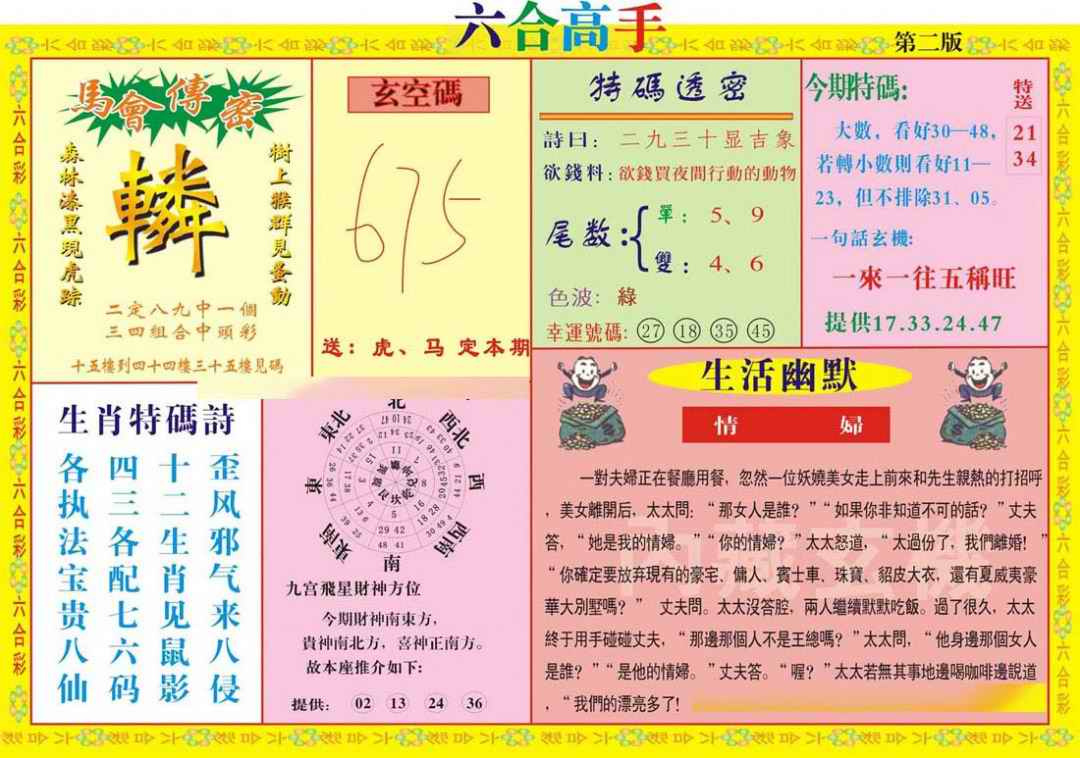 六合高手
第二版
馬會傳密
森林漆黑現虎踪
轔
樹上猴群見蚤動
二定八九中一個
三四組合中頭彩
十五樓到四十四樓三十五樓見碼
玄空碼
675
送：虎、马 定本期
特碼透密
詩曰：二九三十显吉象
欲錢料：欲錢買夜間行動的動物
尾数：
單：5、9
雙：4、6
色波：綠
幸運號碼：27 18 35 45
今期特碼：
特送
21
34
大數，看好30—48，
若轉小數則看好11—
23，但不排除31、05。
一句話玄機：
一來一往五稱旺
提供17.33.24.47
生肖特碼詩
歪风邪气来八侵
十二生肖见鼠影
四三各配七六码
各执法宝贵八仙
北
西北
西
西南
南
東南
東
東北
九宫飛星財神方位
今期財神南東方，
貴神南北方，喜神正南方。
故本座推介如下：
提供： 02 13 24 36
生活幽默
情婦
一對夫婦正在餐廳用餐，忽然一位妖嬈美女走上前來和先生親熱的打招呼
，美女離開后，太太問：“那女人是誰？”“如果你非知道不可的話？”丈夫
答，“她是我的情婦。”“你的情婦？”太太怒道，“太過份了，我們離婚！”
“你確定要放弃現有的豪宅、傭人、賓士車、珠寶、貂皮大衣，還有夏威夷豪
華大別墅嗎？” 丈夫問。太太沒答腔，兩人繼續默默吃飯。過了很久，太太
終于用手碰碰丈夫，“那邊那個人不是王總嗎？”太太問，“他身邊那個女人
是誰？”“是他的情婦。”丈夫答。“喔？”太太若無其事地邊喝咖啡邊說道
，“我們的漂亮多了！
内藏玄機
六合彩